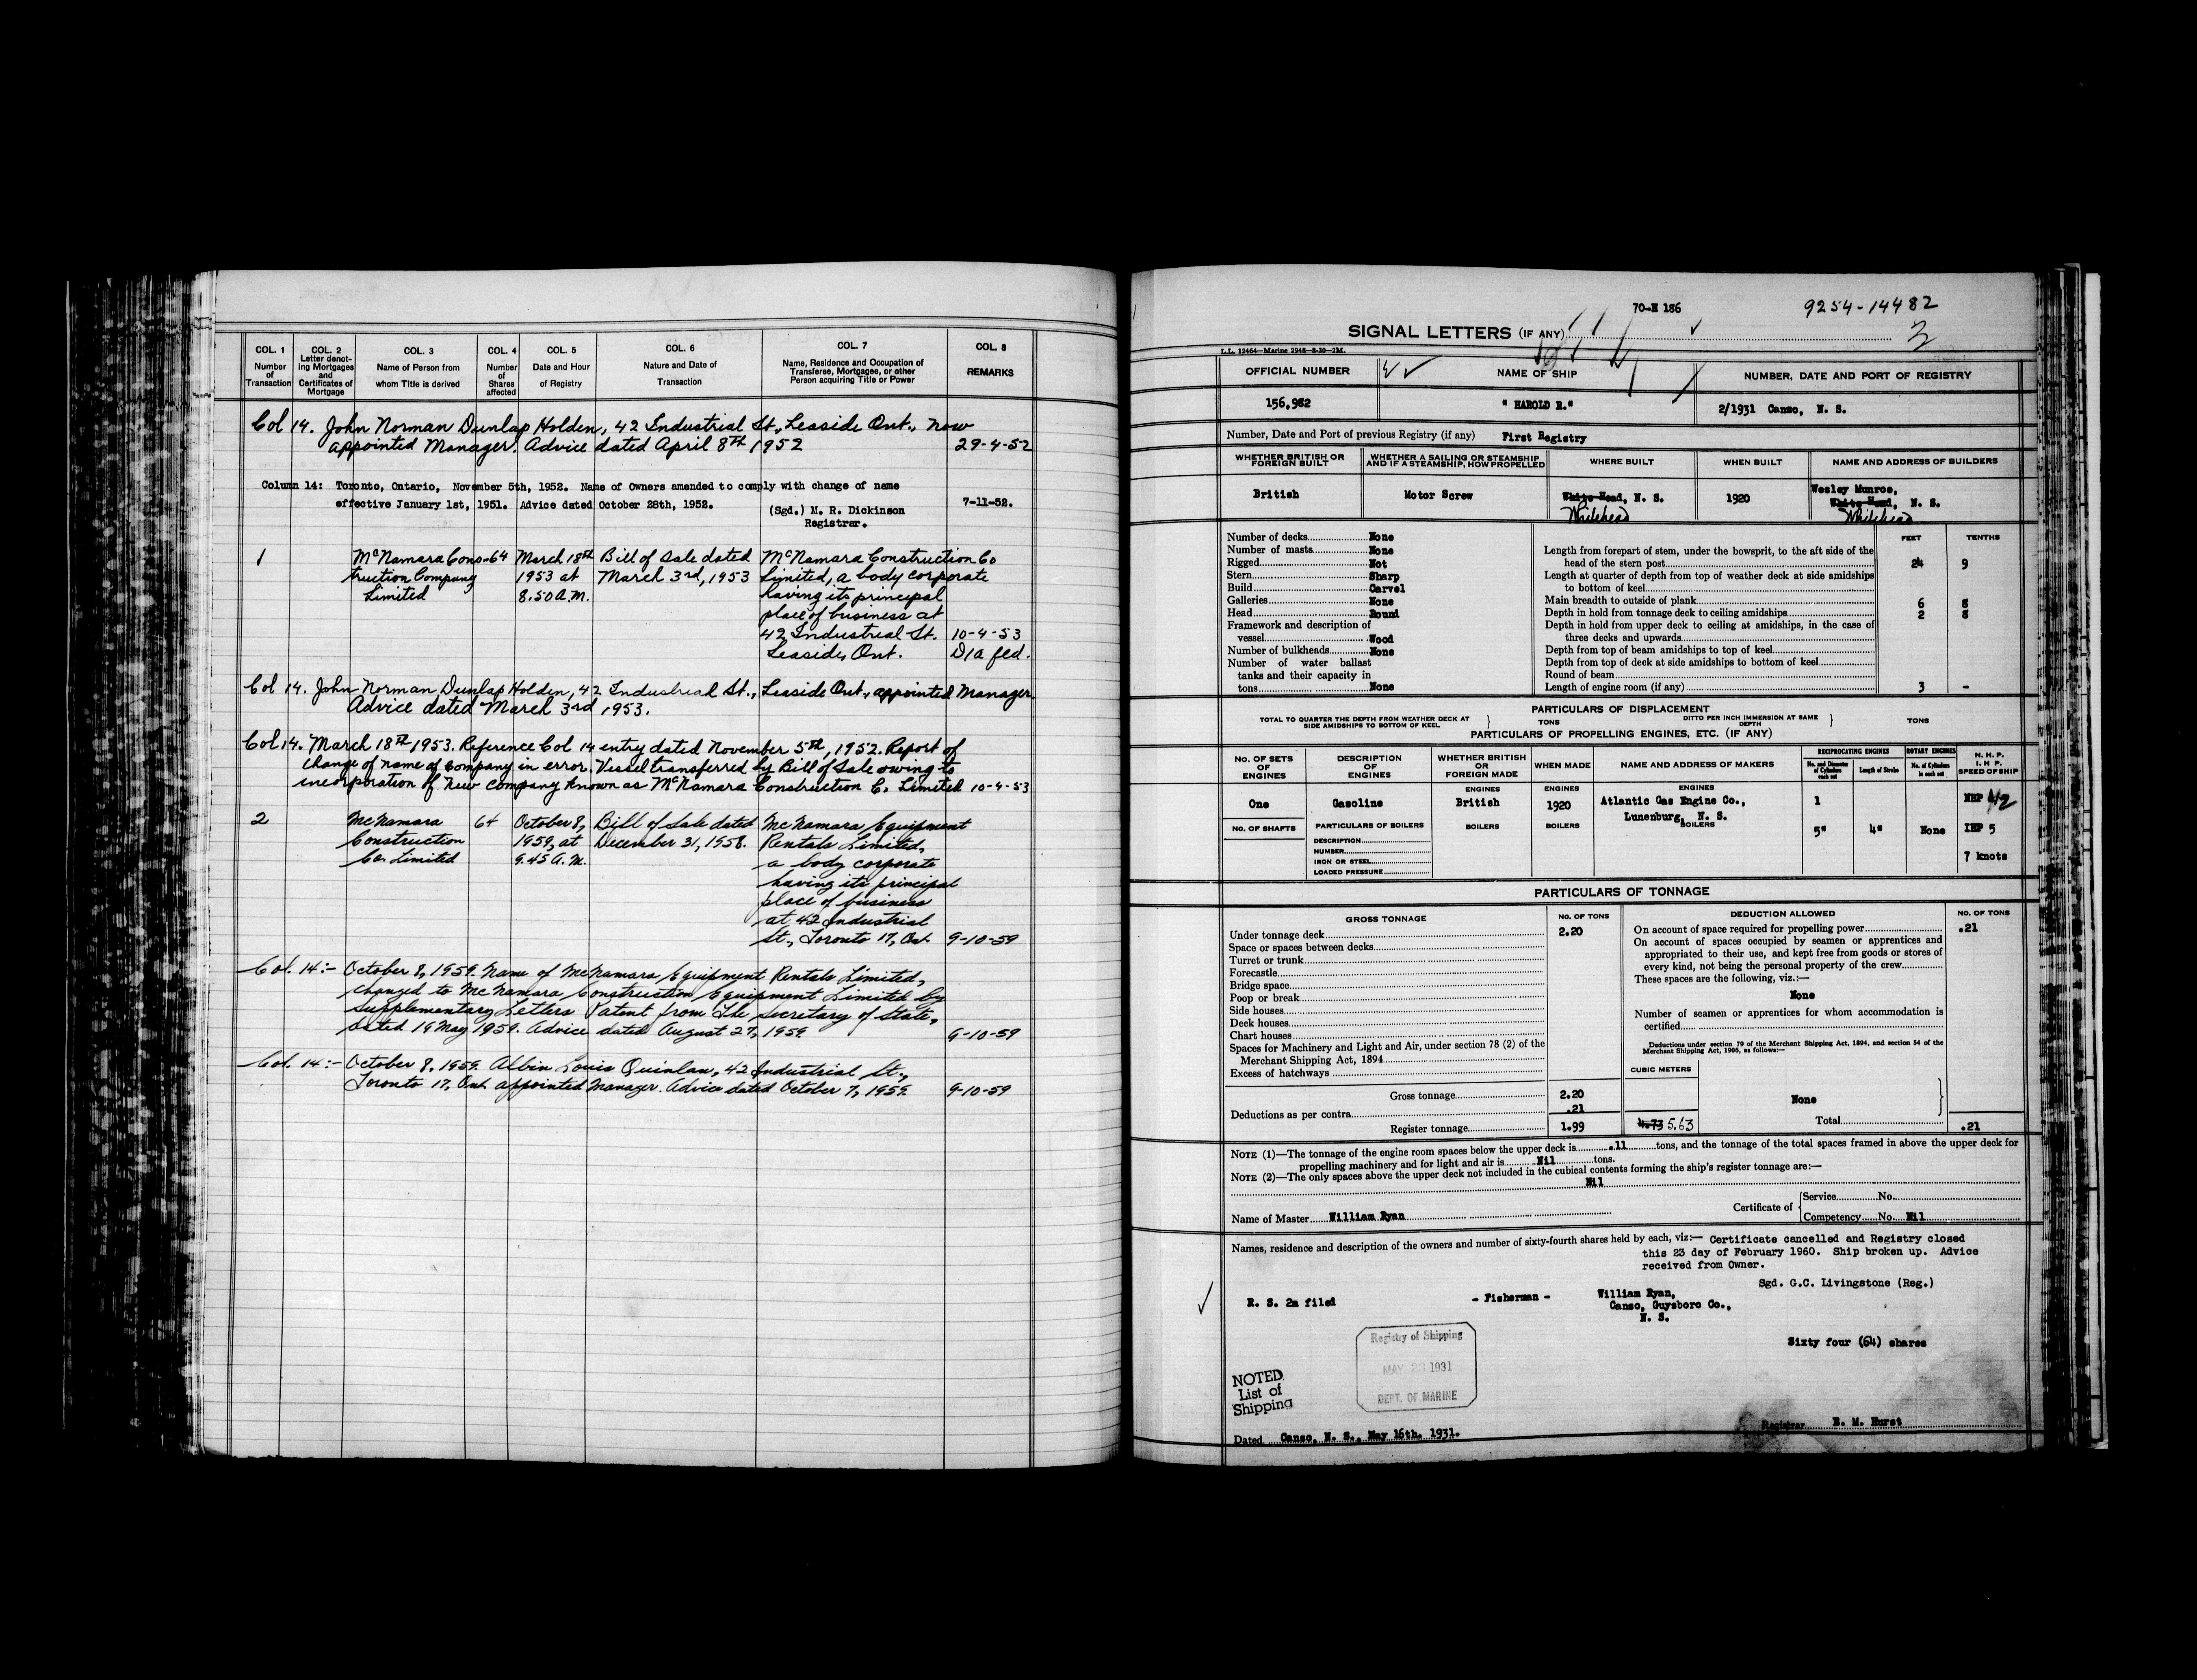 COL. 1 Number of Transaction
COL. 2 Letter denoting Mortgages and Certificates of Mortgage
COL. 3 Name of Person from whom Title is derived
COL. 4 Number of Shares affected
COL. 5 Date and Hour of Registry
COL. 6 Nature and Date of Transaction
COL. 7 Name, Residence and Occupation of Transferee, Mortgagee, or other Person acquiring Title or Power
COL. 8 REMARKS
Col 14. John Norman Dunlap Holden, 42 Industrial St., Leaside Ont., now
appointed Manager. Advice dated April 8TH 1952 29-4-52
Column 14: Toronto, Ontario, November 5th, 1952. Name of Owners amended to comply with change of name
effective January 1st, 1951. Advice dated October 28th, 1952. 7-11-52.
(Sgd.) M. R. Dickinson
Registrar.
1 McNamara Cons- 64 March 18th Bill of Sale dated McNamara Construction Co
truction Company 1953 at March 3rd, 1953 Limited, a body corporate
Limited 8.50 A.M. having its principal
place of business at
42 Industrial St. 10-4-53
Leaside, Ont. D/a fld.
Col 14. John Norman Dunlap Holden, 42 Industrial St., Leaside Ont., appointed Manager.
Advice dated March 3rd 1953.
Col 14. March 18th 1953. Reference Col 14 entry dated November 5th, 1952. Report of
change of name of company in error. Vessel transferred by Bill of Sale owing to
incorporation of new company known as McNamara Construction Co Limited 10-4-53
2 McNamara 64 October 8, Bill of Sale dated McNamara Equipment
Construction 1959, at December 31, 1958. Rentals Limited,
Co. Limited 9.45 A.M. a body corporate
having its principal
place of business
at 42 Industrial
St., Toronto 17, Ont. 9-10-59
Col. 14:- October 8, 1959. Name of McNamara Equipment Rentals Limited,
changed to McNamara Construction Equipment Limited by
supplementary Letters Patent from The Secretary of State,
dated 19 May 1959. Advice dated August 27, 1959. 9-10-59
Col. 14:- October 8, 1959. Albin Louis Quinlan, 42 Industrial St.,
Toronto 17, Ont. appointed Manager. Advice dated October 7, 1959. 9-10-59
70-H 186 9254-14482
SIGNAL LETTERS (IF ANY) 3
L.L. 12464—Marine 2948—8-30—2M.
OFFICIAL NUMBER NAME OF SHIP NUMBER, DATE AND PORT OF REGISTRY
156,982 " HAROLD R." 2/1931 Canso, N. S.
Number, Date and Port of previous Registry (if any) First Registry
WHETHER BRITISH OR FOREIGN BUILT
WHETHER A SAILING OR STEAMSHIP AND IF A STEAMSHIP, HOW PROPELLED
WHERE BUILT
WHEN BUILT
NAME AND ADDRESS OF BUILDERS
British Motor Screw White Head, N. S. 1920 Wesley Munroe,
White Head, N. S.
Whitehead Whitehead
Number of decks None
Number of masts None
Rigged Not
Stern Sharp
Build Carvel
Galleries None
Head Round
Framework and description of
vessel Wood
Number of bulkheads None
Number of water ballast
tanks and their capacity in
tons None
FEET TENTHS
Length from forepart of stem, under the bowsprit, to the aft side of the
head of the stern post 24 9
Length at quarter of depth from top of weather deck at side amidships
to bottom of keel
Main breadth to outside of plank 6 8
Depth in hold from tonnage deck to ceiling amidships 2 8
Depth in hold from upper deck to ceiling at amidships, in the case of
three decks and upwards
Depth from top of beam amidships to top of keel
Depth from top of deck at side amidships to bottom of keel
Round of beam
Length of engine room (if any) 3 -
PARTICULARS OF DISPLACEMENT
TOTAL TO QUARTER THE DEPTH FROM WEATHER DECK AT SIDE AMIDSHIPS TO BOTTOM OF KEEL } TONS DITTO PER INCH IMMERSION AT SAME DEPTH } TONS
PARTICULARS OF PROPELLING ENGINES, ETC. (IF ANY)
NO. OF SETS OF ENGINES
DESCRIPTION OF ENGINES
WHETHER BRITISH OR FOREIGN MADE
WHEN MADE
NAME AND ADDRESS OF MAKERS
RECIPROCATING ENGINES
No. and Diameter of Cylinders each set
Length of Stroke
ROTARY ENGINES
No. of Cylinders in each set
N. H. P.
I. H. P.
SPEED OF SHIP
ENGINES ENGINES ENGINES
One Gasoline British 1920 Atlantic Gas Engine Co., 1 NHP 1/2
Lunenburg, N. S.
NO. OF SHAFTS PARTICULARS OF BOILERS BOILERS BOILERS BOILERS 5" 4" None IHP 5
DESCRIPTION
NUMBER
IRON OR STEEL 7 knots
LOADED PRESSURE
PARTICULARS OF TONNAGE
GROSS TONNAGE NO. OF TONS DEDUCTION ALLOWED NO. OF TONS
Under tonnage deck 2.20
Space or spaces between decks
Turret or trunk
Forecastle
Bridge space
Poop or break
Side houses
Deck houses
Chart houses
Spaces for Machinery and Light and Air, under section 78 (2) of the
Merchant Shipping Act, 1894
Excess of hatchways
Gross tonnage 2.20
Deductions as per contra .21
Register tonnage 1.99
On account of space required for propelling power .21
On account of spaces occupied by seamen or apprentices and
appropriated to their use, and kept free from goods or stores of
every kind, not being the personal property of the crew
These spaces are the following, viz.:—
None
Number of seamen or apprentices for whom accommodation is
certified
Deductions under section 79 of the Merchant Shipping Act, 1894, and section 54 of the
Merchant Shipping Act, 1906, as follows:—
CUBIC METERS
None
4.73 5.63 Total .21
NOTE (1)—The tonnage of the engine room spaces below the upper deck is .11 tons, and the tonnage of the total spaces framed in above the upper deck for
propelling machinery and for light and air is Nil tons.
NOTE (2)—The only spaces above the upper deck not included in the cubical contents forming the ship's register tonnage are:—
Nil
Name of Master William Ryan
Certificate of { Service No.
Competency No. Nil
Names, residence and description of the owners and number of sixty-fourth shares held by each, viz:— Certificate cancelled and Registry closed
this 23 day of February 1960. Ship broken up. Advice
received from Owner.
Sgd. G.C. Livingstone (Reg.)
R. S. 2a filed - Fisherman - William Ryan,
Canso, Guysboro Co.,
N. S.
Sixty four (64) shares
Registry of Shipping
MAY 23 1931
DEPT. OF MARINE
NOTED
List of
Shipping
Registrar E. M. Hurst
Dated Canso, N. S., May 16th. 1931.